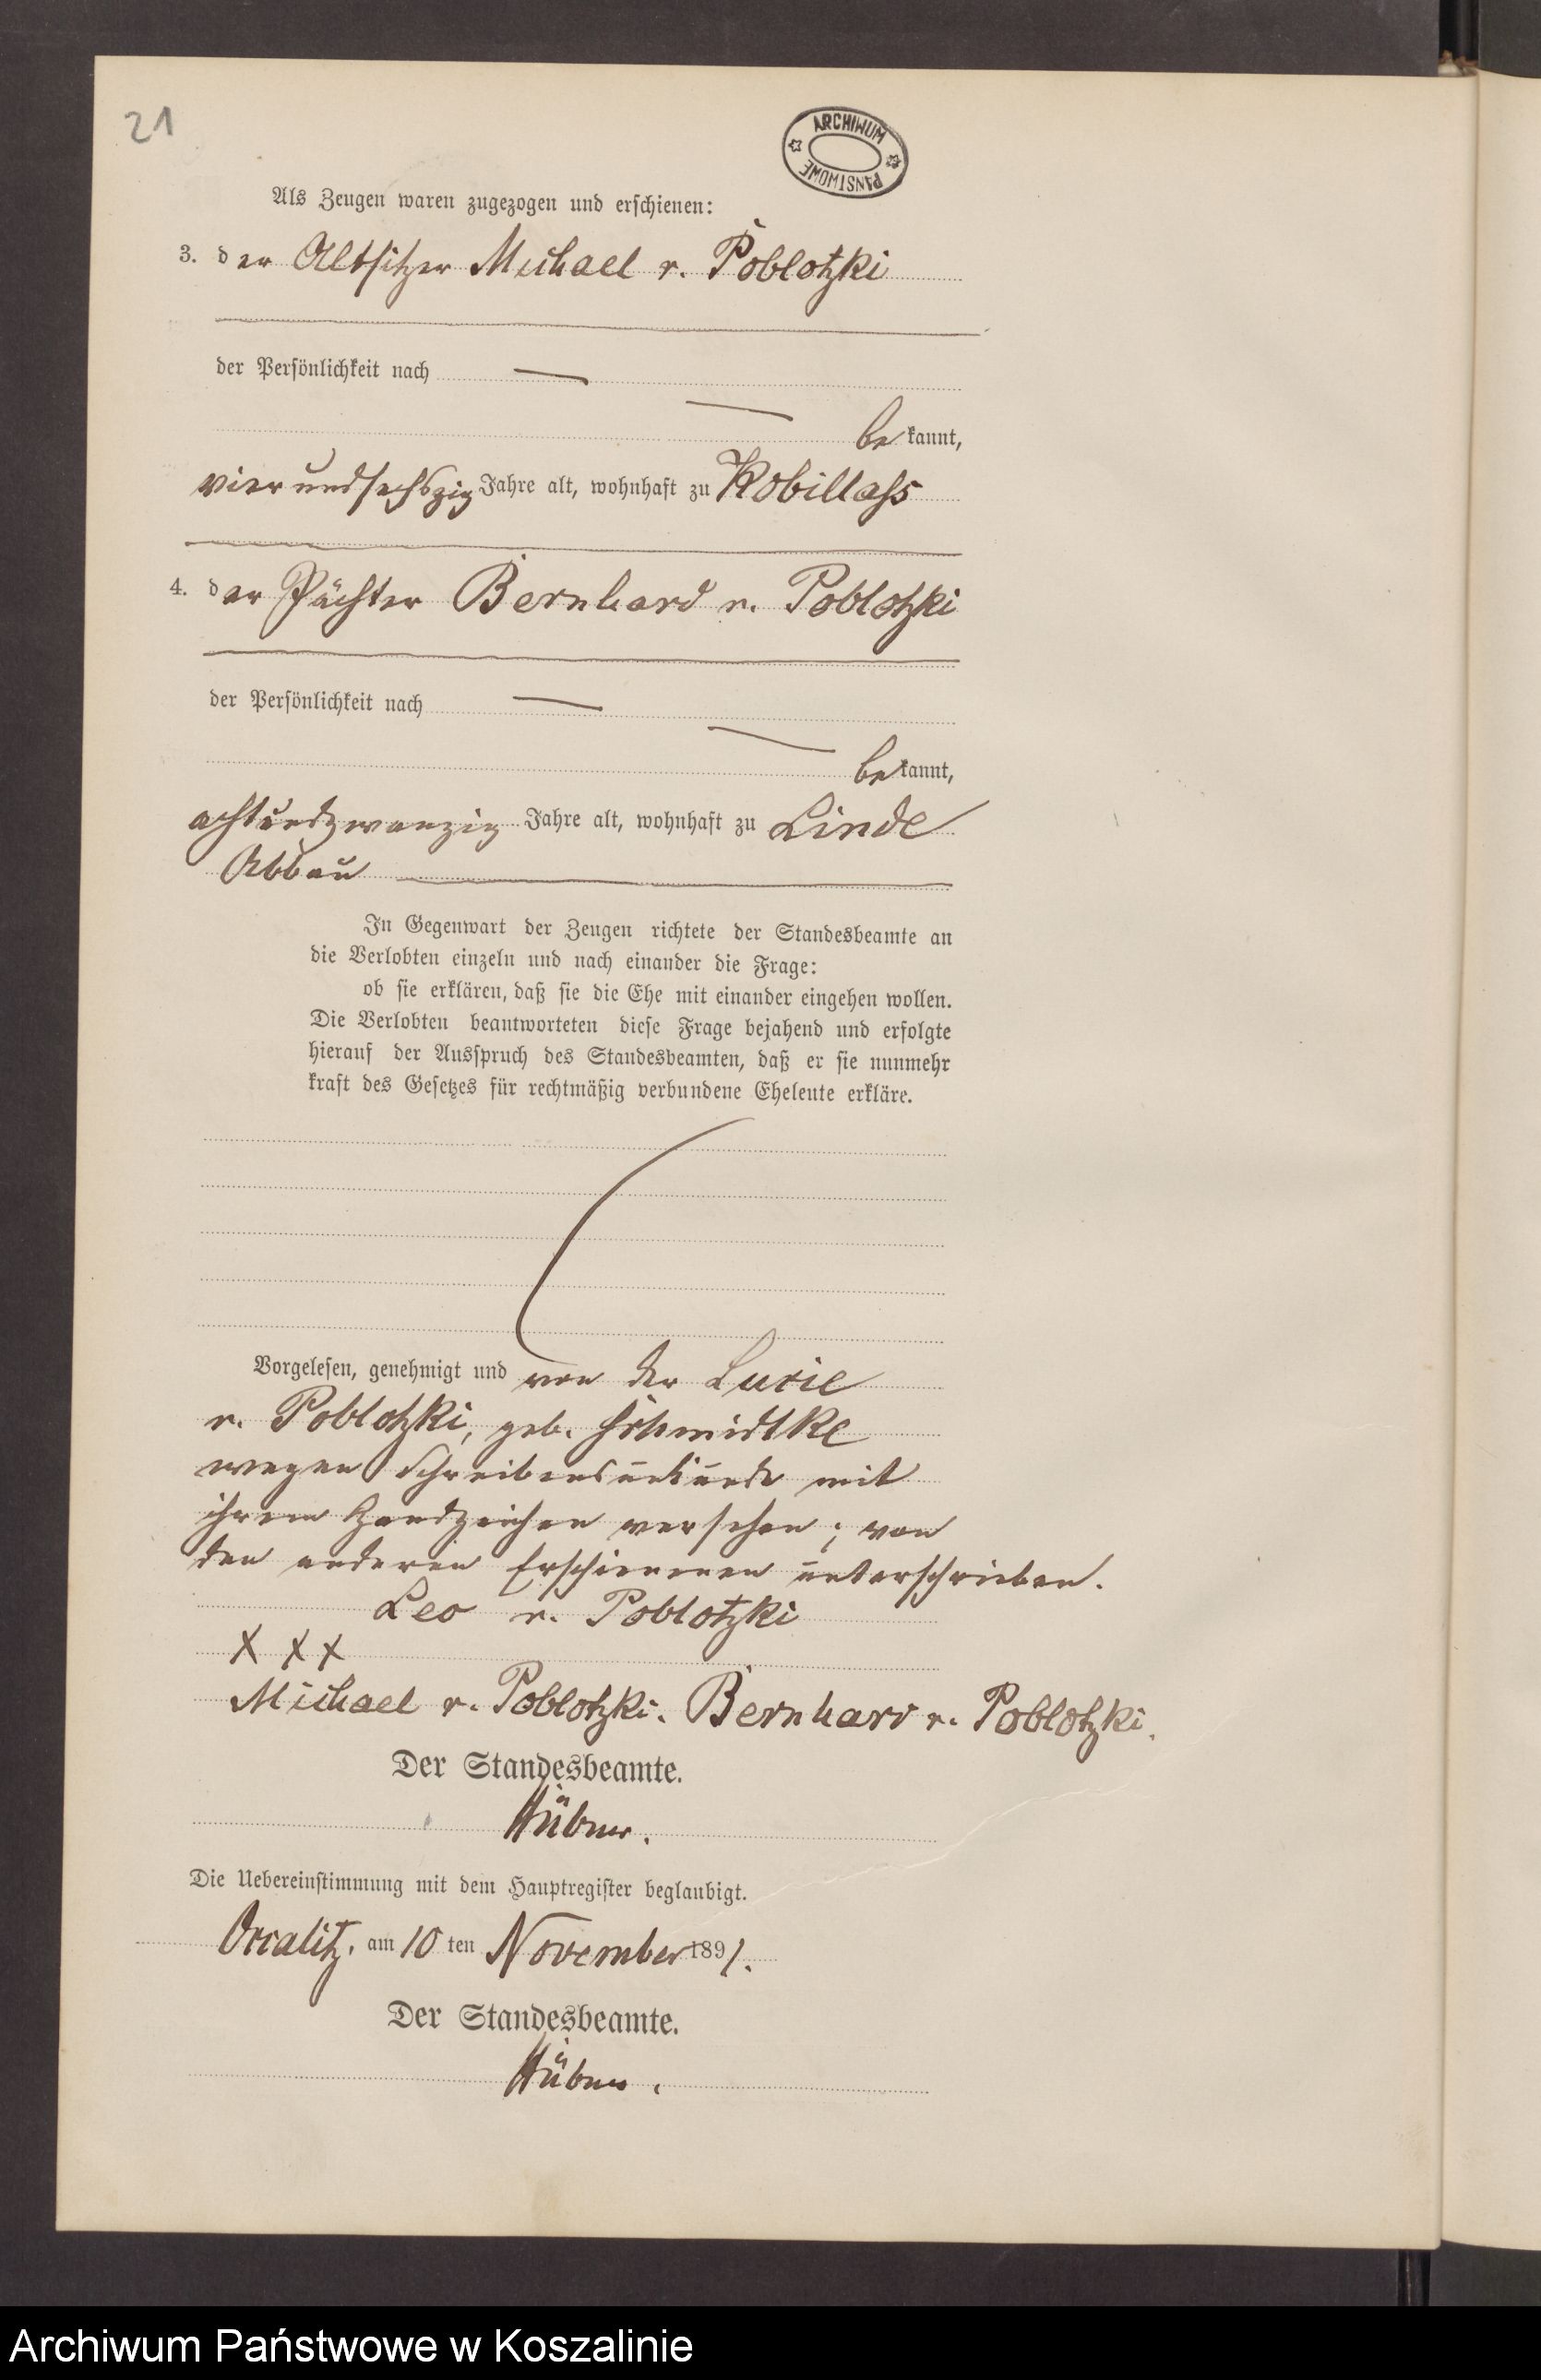 21
ARCHIWUM PAŃSTWOWE
Als Zeugen waren zugezogen und erschienen:
3. der Altsitzer Michael v. Poblotzki
der Persönlichkeit nach —
— bekannt,
vierundsechszig Jahre alt, wohnhaft zu Kobillass
4. der Pächter Bernhard v. Poblotzki
der Persönlichkeit nach —
— bekannt,
achtundzwanzig Jahre alt, wohnhaft zu Linde
Abbau
In Gegenwart der Zeugen richtete der Standesbeamte an
die Verlobten einzeln und nach einander die Frage:
ob sie erklären, daß sie die Ehe mit einander eingehen wollen.
Die Verlobten beantworteten diese Frage bejahend und erfolgte
hierauf der Ausspruch des Standesbeamten, daß er sie nunmehr
kraft des Gesetzes für rechtmäßig verbundene Eheleute erkläre.
Vorgelesen, genehmigt und von der
v. Poblotzki, geb. Schmidtke
wegen Schreibensunkunde mit
ihrem Handzeichen versehen; von
den anderen Erschienenen unterschrieben.
Leo v. Poblotzki
X X X
Michael v. Poblotzki. Bernhard v. Poblotzki.
Der Standesbeamte.
Hübner.
Die Uebereinstimmung mit dem Hauptregister beglaubigt.
am 10 ten November 1891.
Der Standesbeamte.
Hübner.
Archiwum Państwowe w Koszalinie